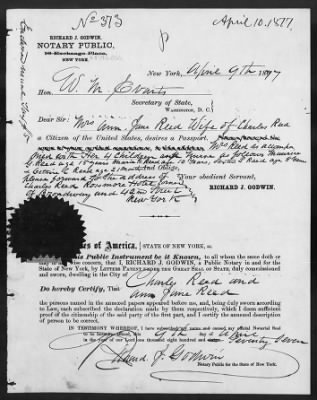 No 373
April 10. 1877.
RICHARD J. GODWIN,
NOTARY PUBLIC,
16 Exchange Place,
NEW YORK.
New York, April 9th 1877
Hon. W. M. Evarts
Secretary of State,
WASHINGTON, D. C.
Dear Sir: Mrs Ann Jane Reed Wife of Charles Reed
a Citizen of the United States, desires a Passport. Mrs Reed is accompa
nied with Her 4 Children and Nurse as follows Maurice
G Reed age 15 years 13 Years, Reed age 8 Years
& G Reed age 21 Months And Oblige,
please forward to the address of Your obedient Servant,
Charles Reed Rossmore Hotel Corner RICHARD J. GODWIN.
of Broadway and 42nd Street
New York
States of America, STATE OF NEW YORK, ss.
By this Public Instrument be it Known, To all whom the same doth or
may in any wise concern, that I, RICHARD J. GODWIN, a Public Notary in and for the
State of New York, by LETTERS PATENT UNDER THE GREAT SEAL OF STATE, duly commissioned
and sworn, dwelling in the City of
Do hereby Certify, That Charles Reed and
Ann Jane Reed
the persons named in the annexed papers appeared before me and, being duly sworn according
to Law, each subscribed the declaration made by them respectively, which I deem sufficient
proof of the citizenship of the said party of the first part, and certify the annexed description
of person to be correct.
IN TESTIMONY WHEREOF, I have subscribed my name, and caused my official Notarial Seal
to be hereunto affixed, the 9th day of April
in the year of our Lord one thousand eight hundred and Seventy Seven
Richard J. Godwin
Notary Public for the State of New York.